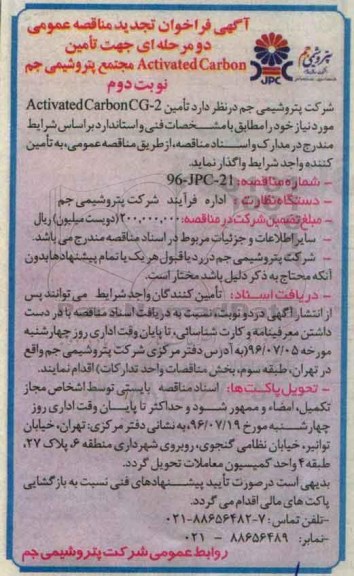 آگهی فراخوان تجدید مناقصه عمومی
دو مرحله ای جهت تأمین
Activated Carbon مجتمع پتروشیمی جم
نوبت دوم
پتروشیمی جم
JPC
شرکت پتروشیمی جم درنظر دارد تأمین Activated Carbon CG-2
مورد نیاز خود را مطابق با مشخصات فنی و استاندارد بر اساس شرایط
مندرج در مدارک و اسناد مناقصه، از طریق مناقصه عمومی، به تأمین
کننده واجد شرایط واگذار نماید.
– شماره مناقصه: 96-JPC-21
– دستگاه نظارت: اداره فرآیند شرکت پتروشیمی جم
– مبلغ تضمین شرکت در مناقصه: ۲۰۰,۰۰۰,۰۰۰ (دویست میلیون) ریال
– سایر اطلاعات و جزئیات مربوط در اسناد مناقصه مندرج می باشد.
– شرکت پتروشیمی جم در رد یا قبول هر یک یا تمام پیشنهادها بدون
آنکه محتاج به ذکر دلیل باشد مختار است.
– دریافت اسناد: تأمین کنندگان واجد شرایط می توانند پس
از انتشار آگهی در دو نوبت، نسبت به دریافت اسناد مناقصه با در دست
داشتن معرفینامه و کارت شناسائی، تا پایان وقت اداری روز چهارشنبه
مورخه ۹۶/۰۷/۰۵ (به آدرس دفتر مرکزی شرکت پتروشیمی جم واقع
در تهران، طبقه سوم، بخش مناقصات واحد تدارکات) اقدام نمایند.
– تحویل پاکت ها: اسناد مناقصه بایستی توسط اشخاص مجاز
تکمیل، امضاء و ممهور شود و حداکثر تا پایان وقت اداری روز
چهارشنبه مورخ ۹۶/۰۷/۱۹، به نشانی دفتر مرکزی: تهران، خیابان
توانیر، خیابان نظامی گنجوی، روبروی شهرداری منطقه ۶، پلاک ۲۷،
طبقه ۴ واحد کمیسیون معاملات تحویل گردد.
بدیهی است در صورت تأیید پیشنهادهای فنی نسبت به بازگشایی
پاکت های مالی اقدام می گردد.
-تلفن تماس: ۷-۸۸۶۵۶۴۸۲-۰۲۱
-نمابر: ۸۸۶۵۶۴۸۹ – ۰۲۱
روابط عمومی شرکت پتروشیمی جم